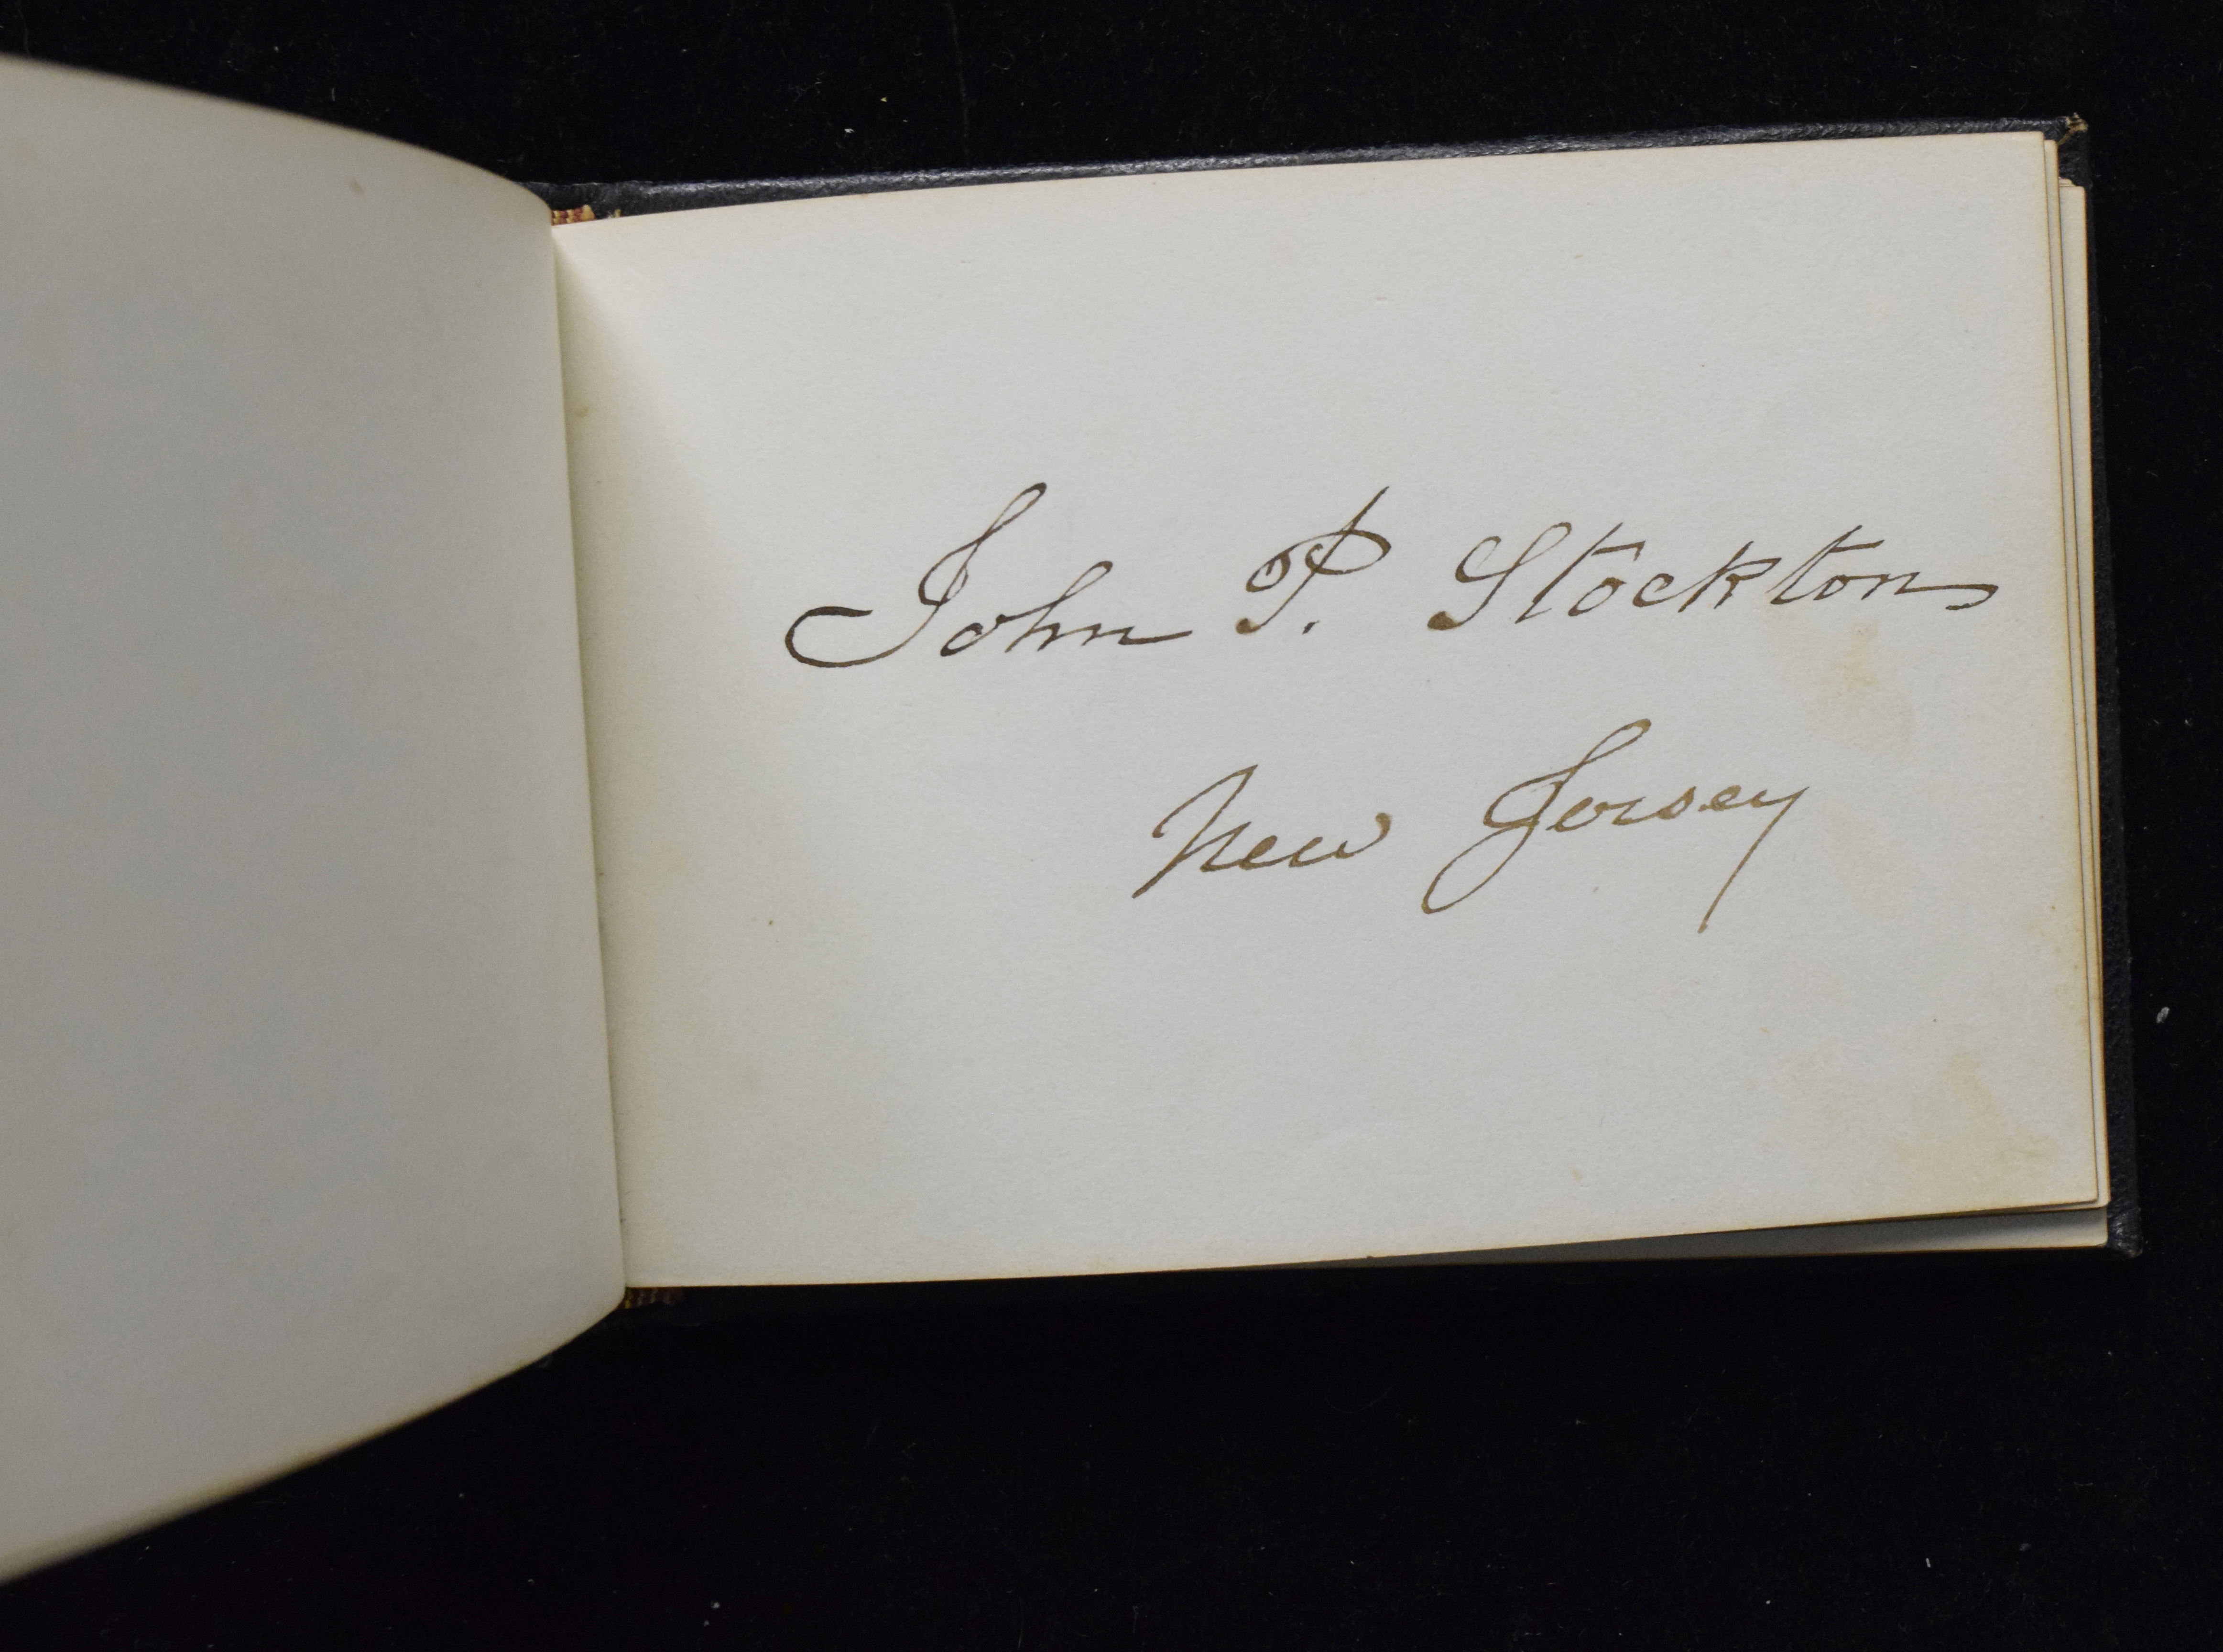 John P. Stockton
New Jersey